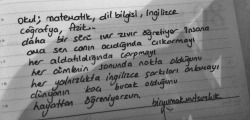 okul; matematik, dil bilgisi, İngilizce
coğrafya, fizik...
daha bir sürü ıvır zıvır öğretiyor insana
ama sen canın acıdığında çıkarmayı
her aldatıldığında çarpmayı
her cümlenin sonunda nokta olduğunu
her yalnızlıkta ingilizce şarkıları
dünyanın kaç bucak olduğunu
hayattan öğreniyorsun.